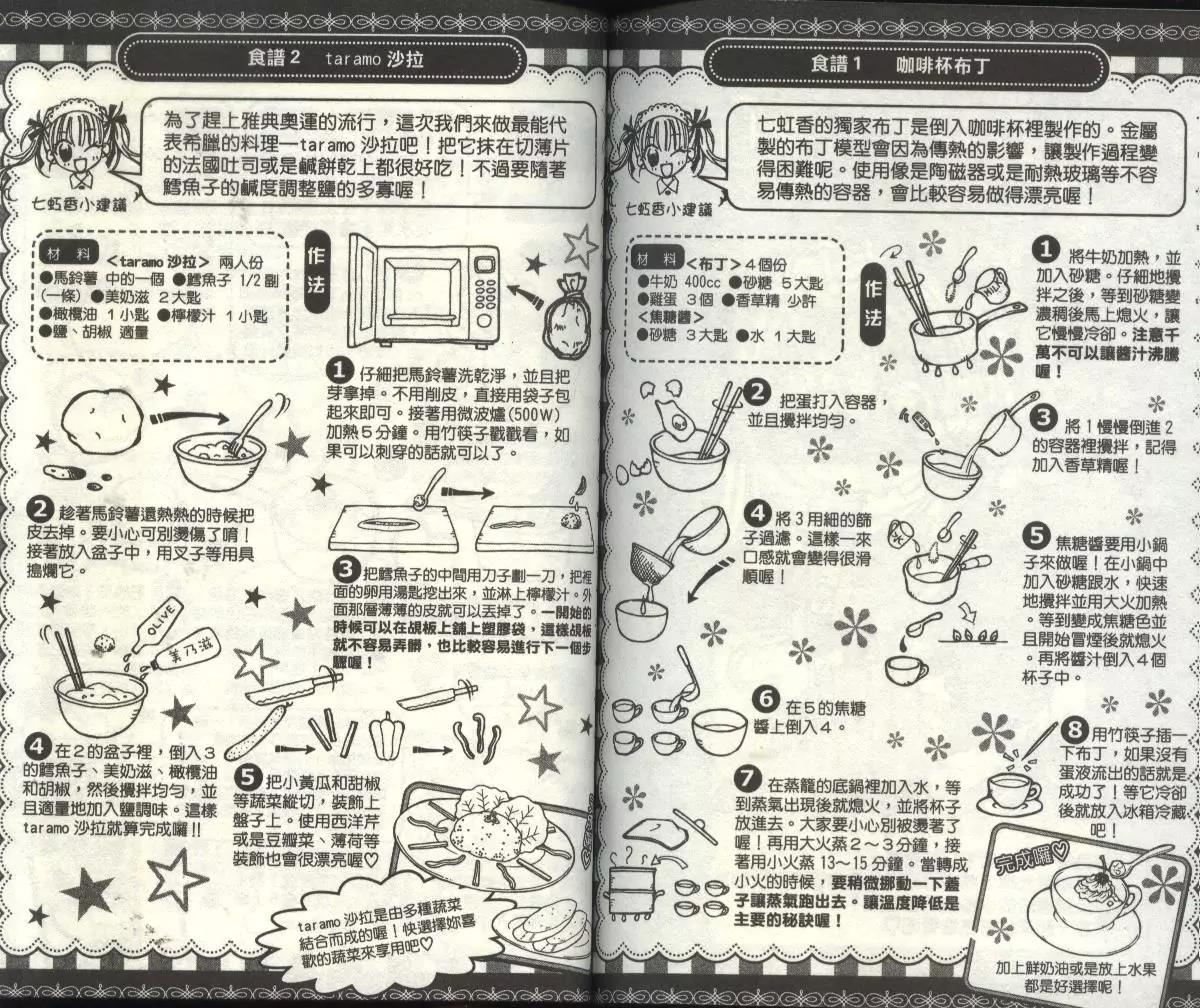 食譜1 咖啡杯布丁
七虹香的獨家布丁是倒入咖啡杯裡製作的。金屬
製的布丁模型會因為傳熱的影響，讓製作過程變
得困難呢。使用像是陶磁器或是耐熱玻璃等不容
易傳熱的容器，會比較容易做得漂亮喔！
七虹香小建議
材 料
<布丁>4個份
●牛奶 400cc ●砂糖 5大匙
●雞蛋 3個 ●香草精 少許
<焦糖醬>
●砂糖 3大匙 ●水 1大匙
作法
MILK
❶ 將牛奶加熱，並
加入砂糖。仔細地攪
拌之後，等到砂糖變
濃稠後馬上熄火，讓
它慢慢冷卻。注意千
萬不可以讓醬汁沸騰
喔！
❷ 把蛋打入容器，
並且攪拌均勻。
❸ 將1慢慢倒進2
的容器裡攪拌，記得
加入香草精喔！
❹ 將3用細的篩
子過濾。這樣一來
口感就會變得很滑
順喔！
❺ 焦糖醬要用小鍋
子來做喔！在小鍋中
加入砂糖跟水，快速
地攪拌並用大火加熱
。等到變成焦糖色並
且開始冒煙後就熄火
。再將醬汁倒入4個
杯子中。
水
❻ 在5的焦糖
醬上倒入4。
❼ 在蒸籠的底鍋裡加入水，等
到蒸氣出現後就熄火，並將杯子
放進去。大家要小心別被燙著了
喔！再用大火蒸2～3分鐘，接
著用小火蒸13～15分鐘。當轉成
小火的時候，要稍微挪動一下蓋
子讓蒸氣跑出去。讓溫度降低是
主要的秘訣喔！
❽ 用竹筷子插一
下布丁，如果沒有
蛋液流出的話就是
成功了！等它冷卻
後就放入冰箱冷藏
吧！
完成囉♡
加上鮮奶油或是放上水果
都是好選擇呢！
食譜2 taramo沙拉
為了趕上雅典奧運的流行，這次我們來做最能代
表希臘的料理—taramo沙拉吧！把它抹在切薄片
的法國吐司或是鹹餅乾上都很好吃！不過要隨著
鱈魚子的鹹度調整鹽的多寡喔！
七虹香小建議
材 料
<taramo沙拉> 兩人份
●馬鈴薯 中的一個 ●鱈魚子 1/2副
(一條) ●美奶滋 2大匙
●橄欖油 1小匙 ●檸檬汁 1小匙
●鹽、胡椒 適量
作法
❶ 仔細把馬鈴薯洗乾淨，並且把
芽拿掉。不用削皮，直接用袋子包
起來即可。接著用微波爐(500W)
加熱5分鐘。用竹筷子戳戳看，如
果可以刺穿的話就可以了。
❷ 趁著馬鈴薯還熱熱的時候把
皮去掉。要小心可別燙傷了唷！
接著放入盆子中，用叉子等用具
搗爛它。
❸ 把鱈魚子的中間用刀子劃一刀，把裡
面的卵用湯匙挖出來，並淋上檸檬汁。外
面那層薄薄的皮就可以丟掉了。一開始的
時候可以在砧板上舖上塑膠袋，這樣砧板
就不容易弄髒，也比較容易進行下一個步
驟喔！
OLIVE
美乃滋
❹ 在2的盆子裡，倒入3
的鱈魚子、美奶滋、橄欖油
和胡椒，然後攪拌均勻，並
且適量地加入鹽調味。這樣
taramo沙拉就算完成囉!!
❺ 把小黃瓜和甜椒
等蔬菜縱切，裝飾上
盤子上。使用西洋芹
或是豆瓣菜、薄荷等
裝飾也會很漂亮喔♡
taramo沙拉是由多種蔬菜
結合而成的喔！快選擇妳喜
歡的蔬菜來享用吧♡